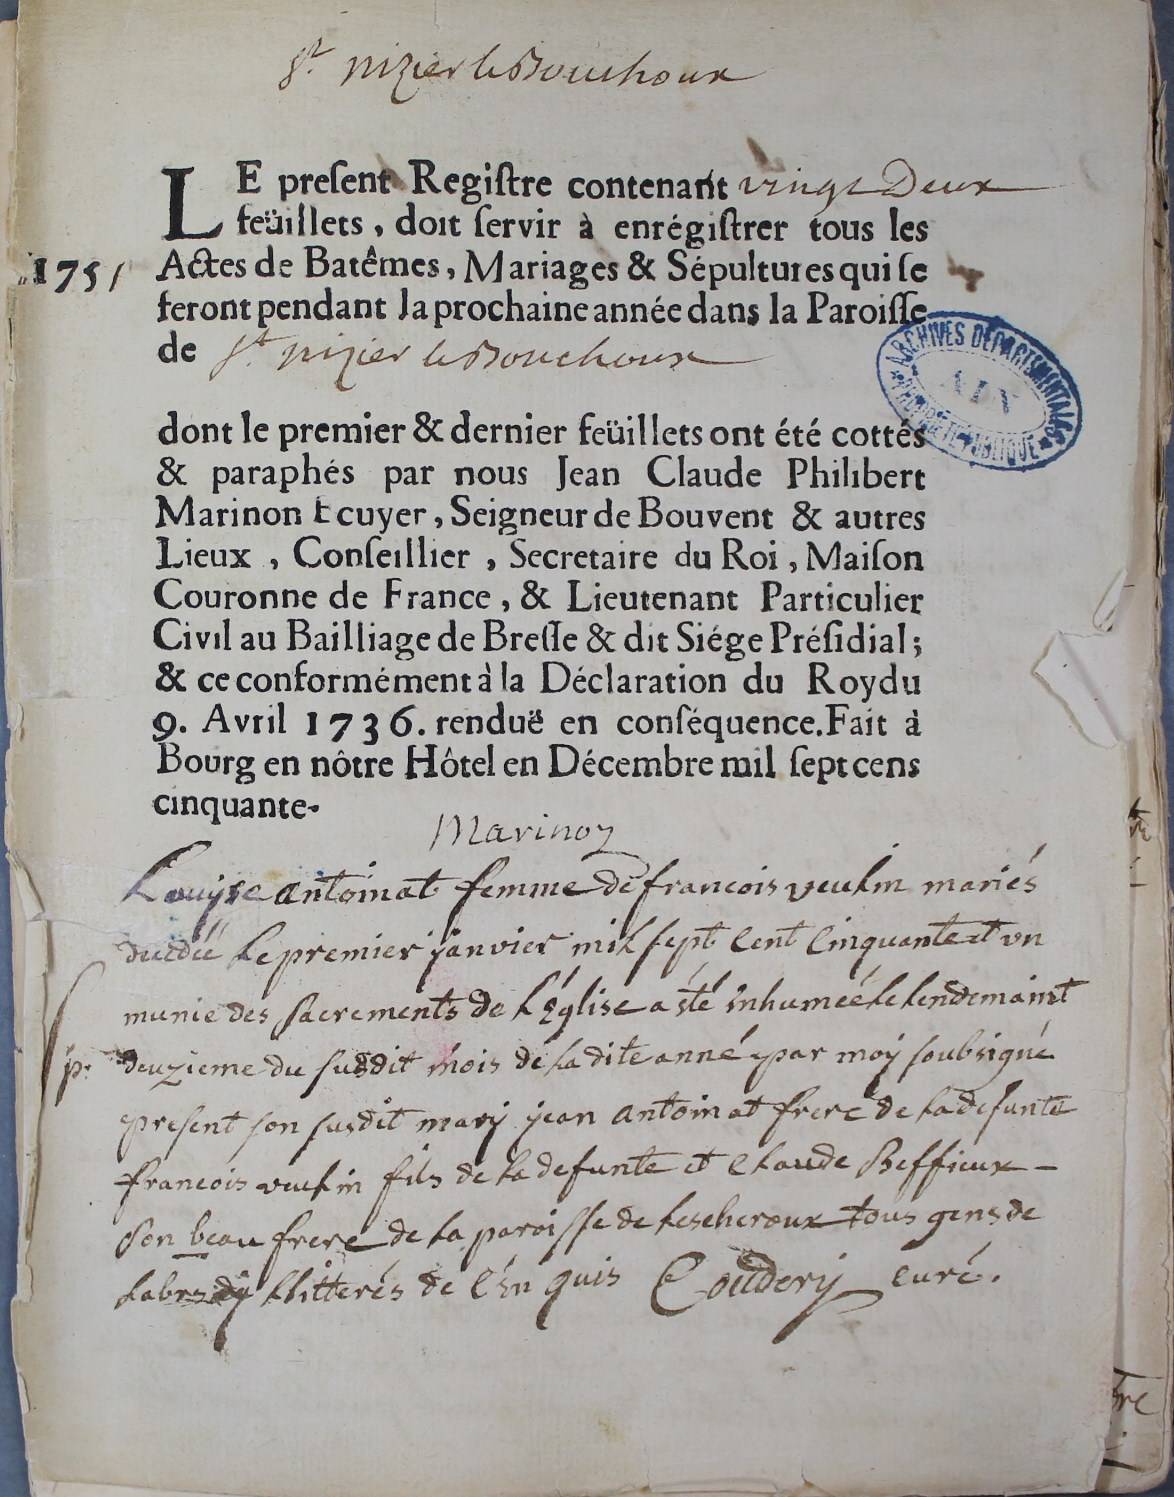 St. nizier le Bouchoux
LE preſent Regiſtre contenant vingt Deux
feüillets, doit ſervir à enrégiſtrer tous les
1751 Actes de Batêmes, Mariages & Sépultures qui ſe
feront pendant la prochaine année dans la Paroiſſe
de St. nizier le Bouchoux
ARCHIVES DÉPARTEMENTALES
AIN
PROPRIÉTÉ PUBLIQUE
dont le premier & dernier feüillets ont été cottés
& paraphés par nous Jean Claude Philibert
Marinon Ecuyer, Seigneur de Bouvent & autres
Lieux, Conſeillier, Secretaire du Roi, Maiſon
Couronne de France, & Lieutenant Particulier
Civil au Bailliage de Breſſe & dit Siége Préſidial;
& ce conformément à la Déclaration du Roy du
9. Avril 1736. renduë en conſéquence. Fait à
Bourg en nôtre Hôtel en Décembre mil ſept cens
cinquante.
Marinon
Louyse antoinat femme de francois veulin mariés
ducdée le premier janvier mil sept cent cinquante et un
munie des sacrements de l'Église a été inhumée le lendemain
p. deuzieme du susdit mois de la dite anné par moy soubsigné
present son susdit mary jean antoinat frere de la defunte
francois veulin fils de la defunte et claude Beffieux
son beau frere de la paroisse de lescheroux tous gens de
illitterés de ce enquis Coudery curé.